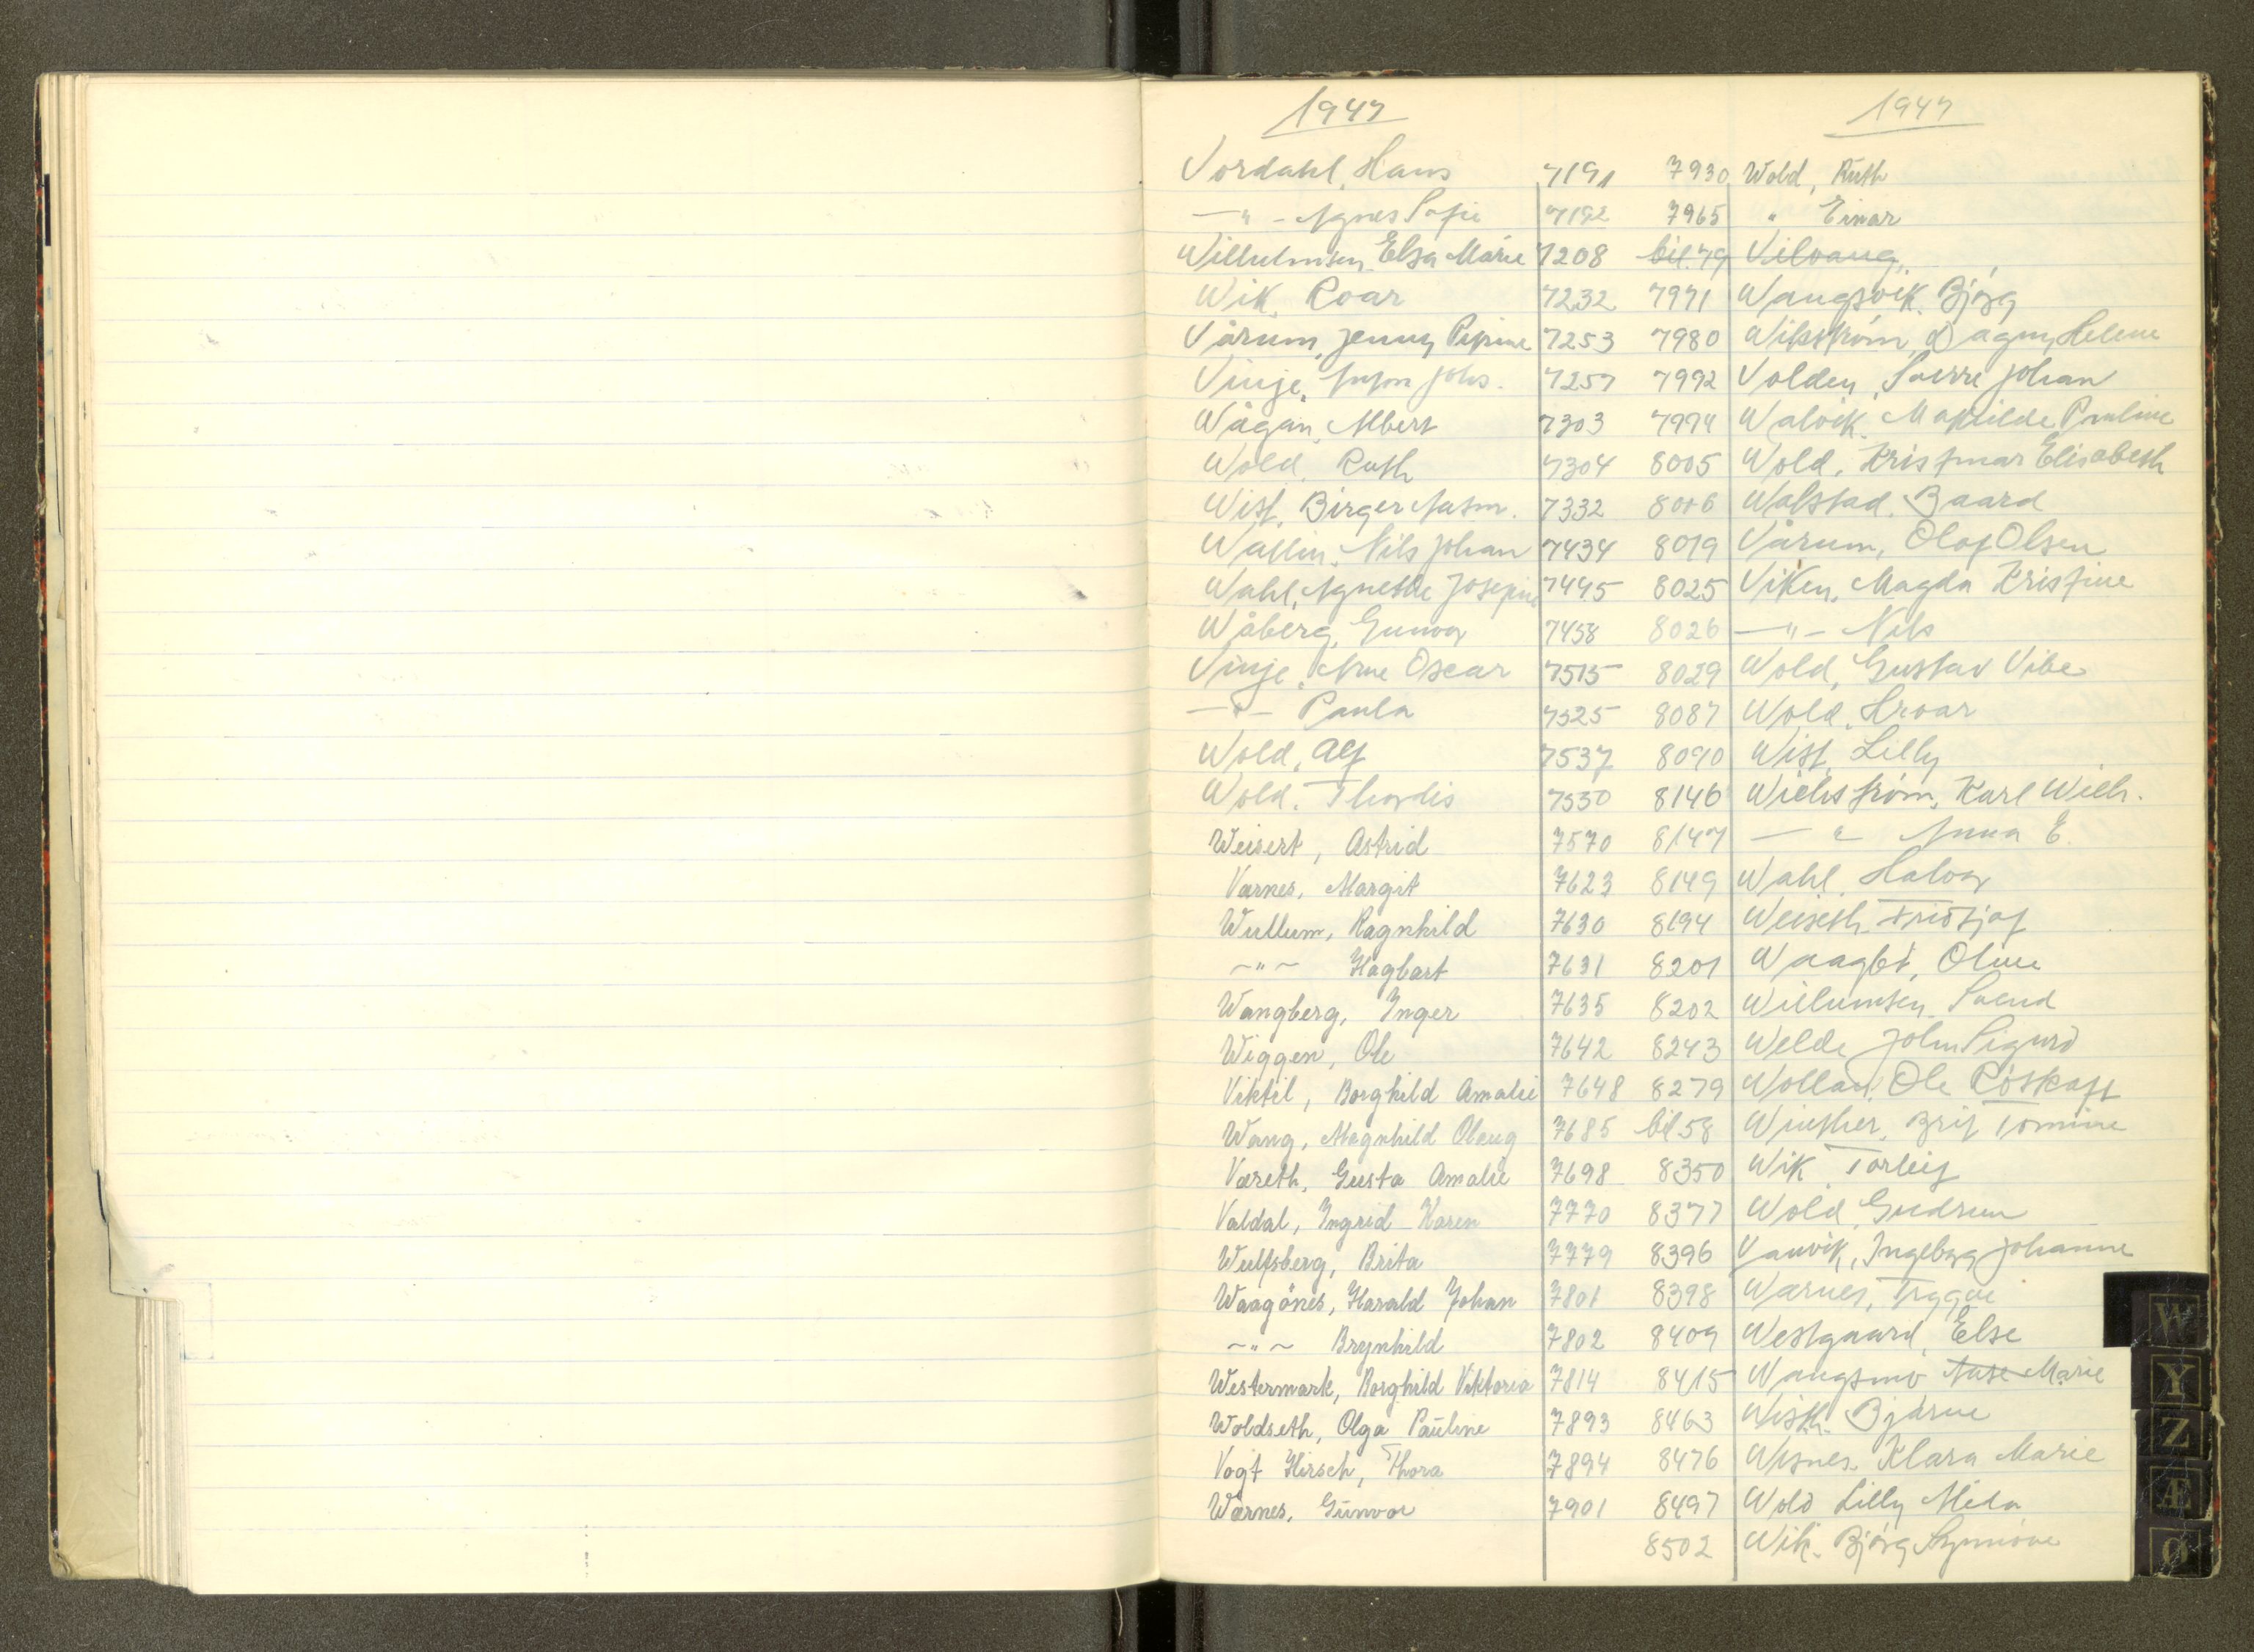 1947 1947
Vordahl, Hans 7191 7930 Wold, Ruth
—"— Agnes Sofie 7192 7965 " Einar
Willumsen, Elsa Marie 7208 bil. 79 Vilvang,
Wik, Roar 7232 7971 Wangsvik, Bjørg
Vårum, Jenny Pepine 7253 7980 Wikstrøm, Dagny Helene
Vinje, Johs. 7257 7992 Volden, Sverre Johan
Wågan, Albert 7303 7994 Walvik, Matilde Pauline
Wold, Ruth 7304 8005 Wold, Elisabeth
Wist, Birger 7332 8016 Walstad, Baard
Wallin, Nils Johan 7434 8019 Vårum, Olaf Olsen
Wahl, Agnethe Josepine 7445 8025 Viken, Magda Kristine
Wåberg, Gunvor 7458 8026 —"— Nils
Vinje, Arne Oscar 7515 8029 Wold, Gustav Vibe
—"— Paula 7525 8087 Wold, Hroar
Wold, Alf 7537 8090 Wist, Lilly
Wold, Thordis 7550 8146 Wichstrøm, Karl Wilh.
Weisert, Astrid 7570 8147 — " — Anna E.
Værnes, Margit 7623 8149 Wahl, Halvor
Wullum, Ragnhild 7630 8194 Weiseth, Fridtjof
—"— Hagbart 7631 8201 Waagbø, Oline
Wangberg, Inger 7635 8202 Willumsen, Svend
Wiggen, Ole 7642 8243 Welde John Sigurd
Viktil, Borghild Amalie 7648 8279 Wollan, Ole Røskaft
Wang, Magnhild Olaug 7685 bil 58 Winther, Brit Tomine
Væreth, Gusta Amalie 7698 8350 Wik, Torleif
Valdal, Ingrid Karen 7770 8377 Wold, Gudrun
Wulfsberg, Brita 7779 8396 Vanvik, Ingeborg Johanne
Waagönes, Harald Johan 7801 8398 Wærnes, Tryggve
—"— Brynhild 7802 8409 Westgaard, Else
Westermark, Borghild Viktoria 7814 8415 Wangsmo Aase Marie
Woldseth, Olga Pauline 7893 8463 Wisth. Bjarne
Vogt Hirsch, Thora 7894 8476 Klara Marie
Wærnes, Gunvor 7901 8497 Wold Lilly Alida
8502 Wik. Bjørg Synnøve
W
Y
Z
Æ
Ø